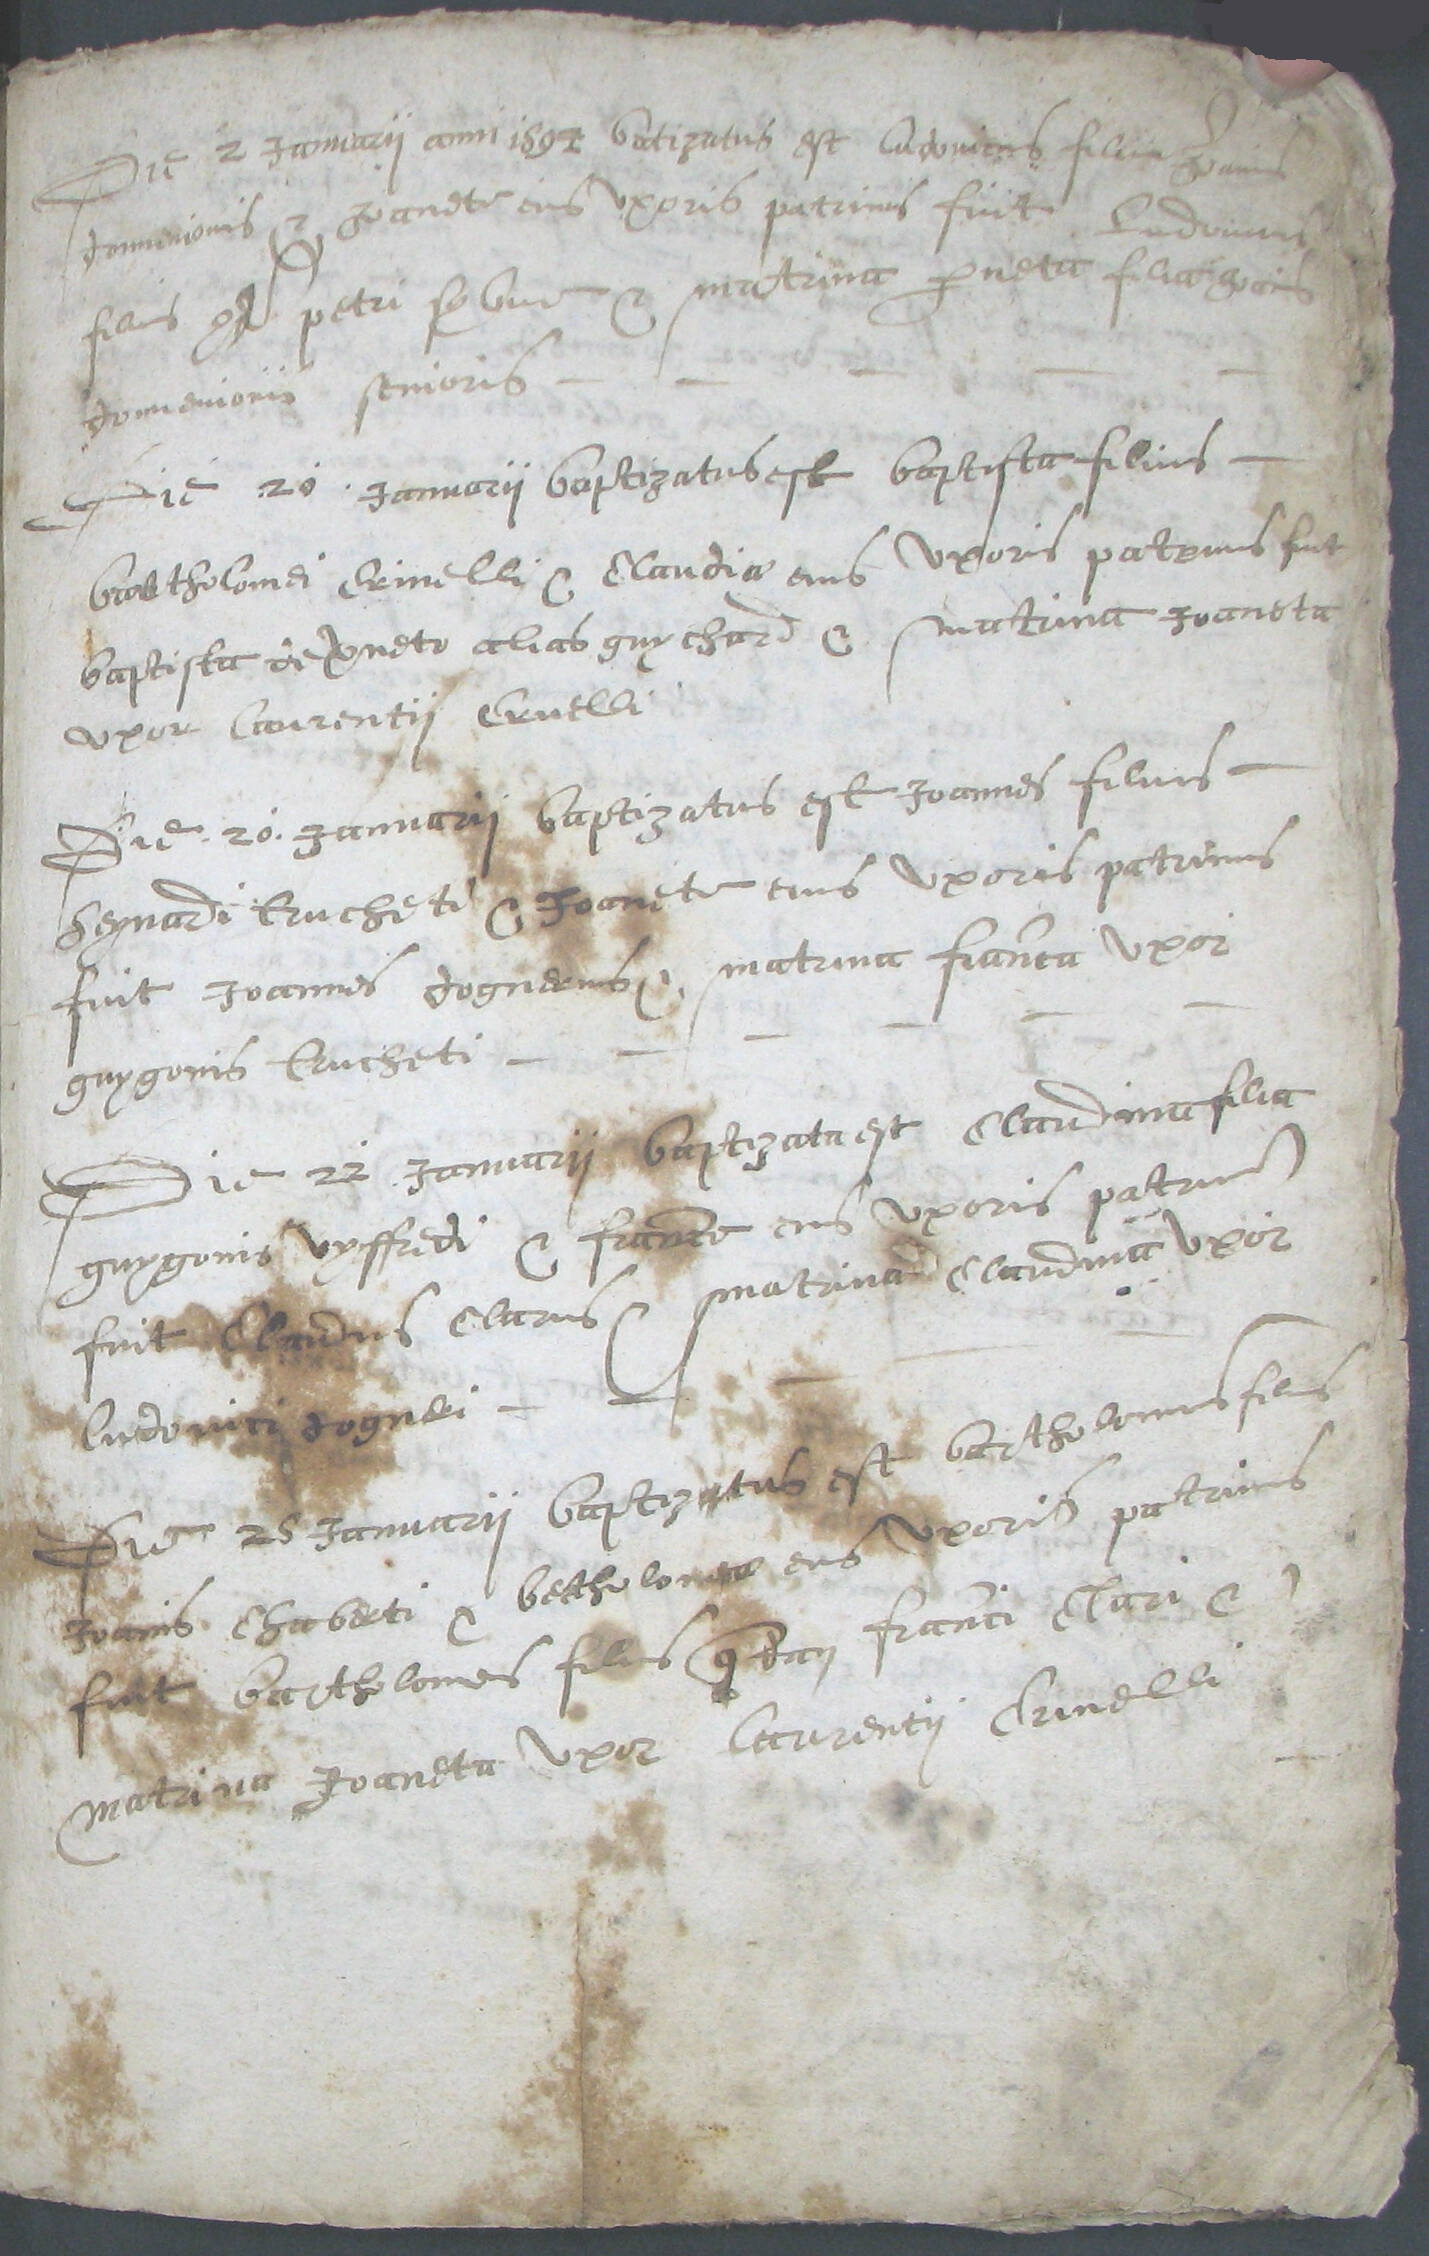 Die 2 Januarii anni 1594 batizatus est ludovicus filius Joanis
domenionis & Joanete eius uxoris patrinus fuit Ludovicus
filius petri & matrina filia Joanis
domenionis senioris
Die 20 Januarii baptizatus est baptista filius
bartholomei Crinelli & Claudie eius uxoris patrinus fuit
baptista de alias guychard & matrina Joaneta
uxor laurentii Crinelli
Die 20 Januarii baptizatus est Joannes filius
Seynardi Crucheti & Joanete eius uxoris patrinus
fuit Joannes dognerius & matrina franca uxor
guygonis Crucheti
Die 22 Januarii baptizata est Claudina filia
guygonis vyffredi & france eius uxoris patrinus
fuit Claudius Clarus & matrina Claudina uxor
ludovici dogneri
Die 25 Januarii baptizatus est bartholomeus filius
Joanis Chaberti & bertholomee eius uxoris patrinus
fuit bartholomeus filius qdam franci Clari &
matrina Joaneta uxor laurentij Crinelli